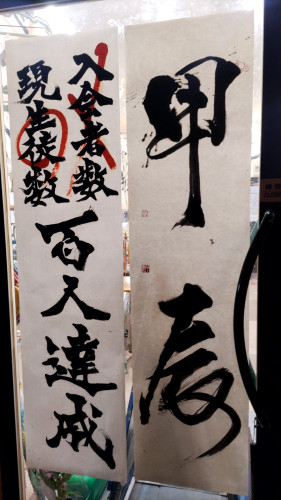 甲辰
入会者数
現生徒数
百人達成